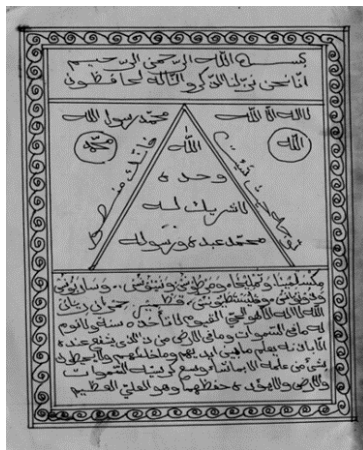 بسم الله الرحمن الرحيم
انا نحن نزلنا الذكر و انا له لحافظون
لا اله الا الله
محمد رسول الله
الله
محمد
الله
وحده
لا شريك له
محمد عبده ورسوله
توجه حيث شئت
فانك منصور
الله لا اله الا هو الحي القيوم لا تاخذه سنة ولا نوم
له ما في السموات وما في الارض من ذا الذي يشفع عنده
الا باذنه يعلم ما بين ايديهم وما خلفهم ولا يحيطون
بشئ من علمه الا بما شاء وسع كرسيه السموات
والارض ولا يؤده حفظهما وهو العلي العظيم